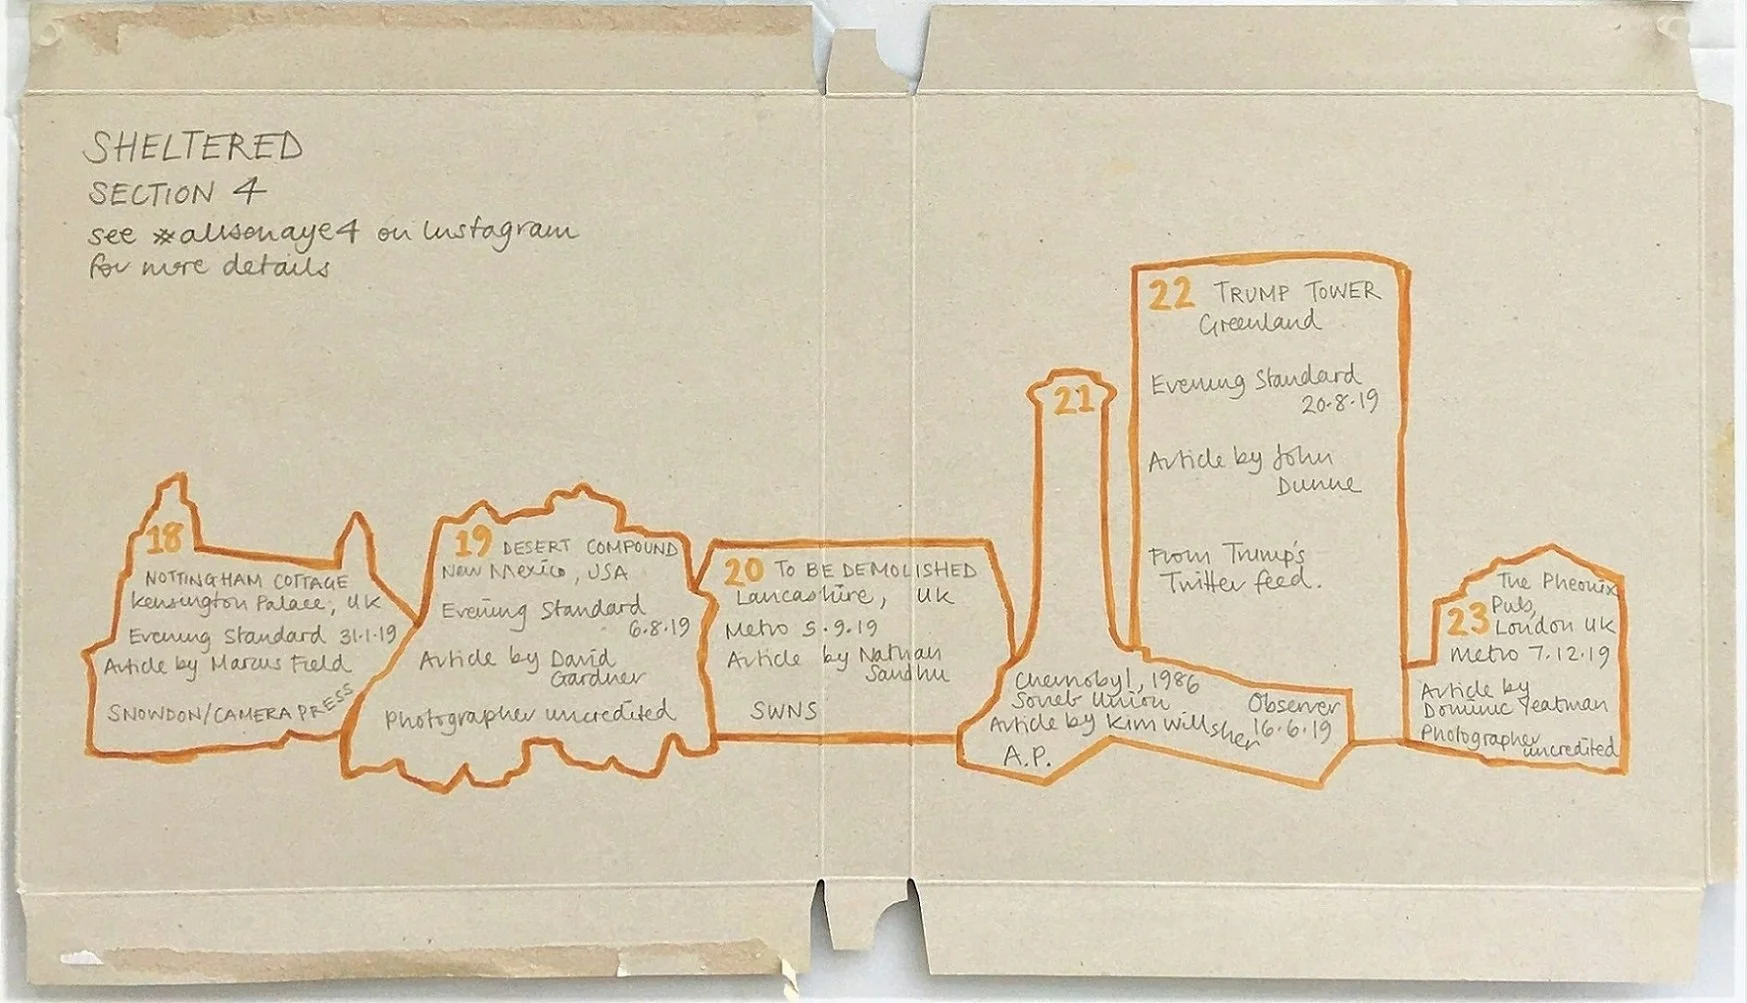 SHELTERED
SECTION 4
see #alisonaye4 on Instagram
for more details
18
NOTTINGHAM COTTAGE
Kensington Palace, UK
Evening Standard 31.1.19
Article by Marcus Field
SNOWDON/CAMERA PRESS
19 DESERT COMPOUND
New Mexico, USA
Evening Standard
6.8.19
Article by David
Gardner
Photographer uncredited
20 TO BE DEMOLISHED
Lancashire, UK
Metro 5.9.19
Article by Nathan
Sandhu
SWNS
21
Chernobyl, 1986
Soviet Union
Observer
Article by Kim Willsher 16.6.19
A.P.
22 TRUMP TOWER
Greenland
Evening Standard
20.8.19
Article by John
Dunne
From Trump's
Twitter feed.
The Pheonix
23 Pub,
London UK
Metro 7.12.19
Article by
Dominic Yeatman
Photographer
uncredited